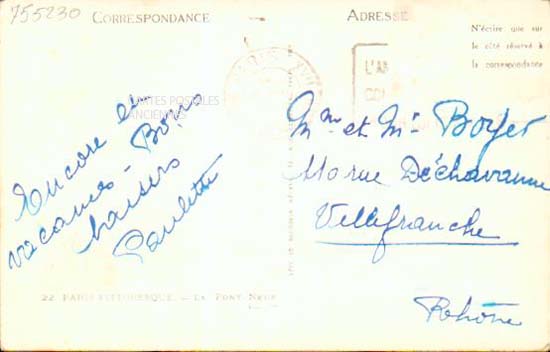 755230
CORRESPONDANCE
ADRESSE
N'écrire que sur
le côté réservé à
la correspondance
CARTES POSTALES
ANCIENNES
Encore en
vacances - Bons
baisers
Paulette
Mme et Mr Boyer
rue Déchavanne
Villefranche
Rhône
22 PARIS PITTORESQUE. - LE PONT NEUF